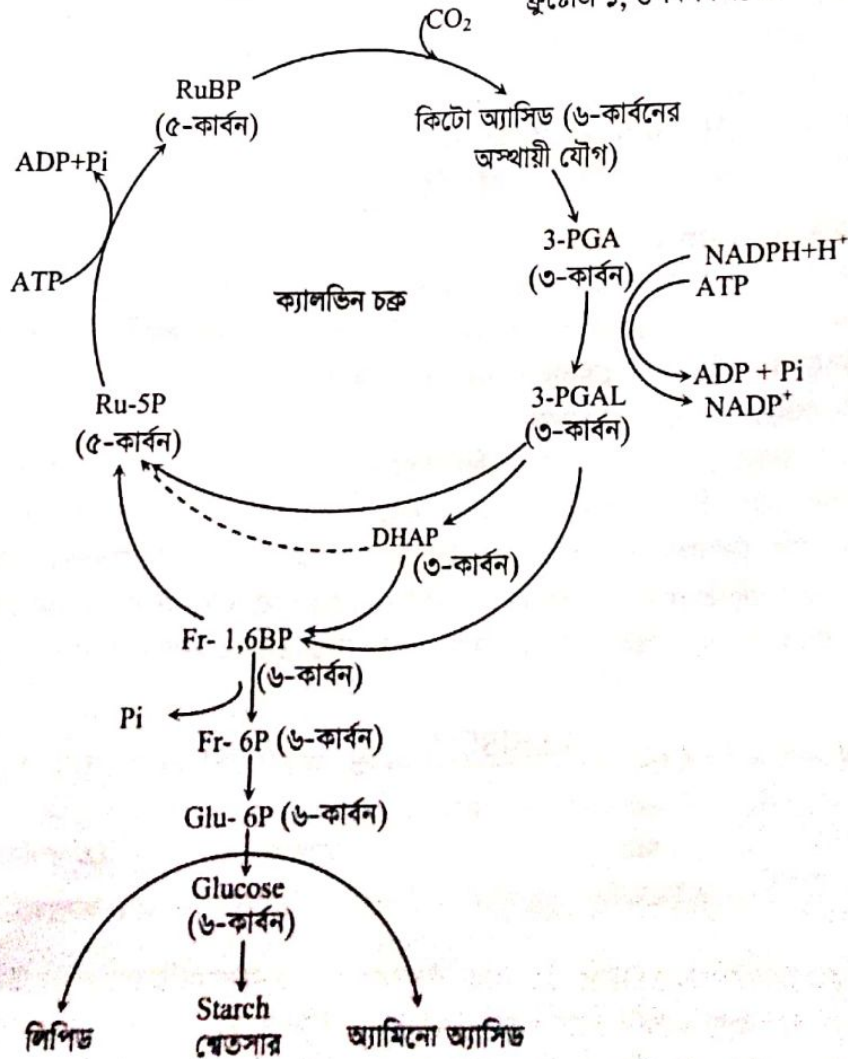 CO₂
RuBP
(৫-কার্বন)
কিটো অ্যাসিড (৬-কার্বনের
অস্থায়ী যৌগ)
ADP+Pi
ATP
3-PGA
(৩-কার্বন)
NADPH+H⁺
ATP
ক্যালভিন চক্র
ADP + Pi
NADP⁺
Ru-5P
(৫-কার্বন)
3-PGAL
(৩-কার্বন)
DHAP
(৩-কার্বন)
Fr- 1,6BP
(৬-কার্বন)
Pi
Fr- 6P (৬-কার্বন)
Glu- 6P (৬-কার্বন)
Glucose
(৬-কার্বন)
লিপিড
Starch
শ্বেতসার
অ্যামিনো অ্যাসিড